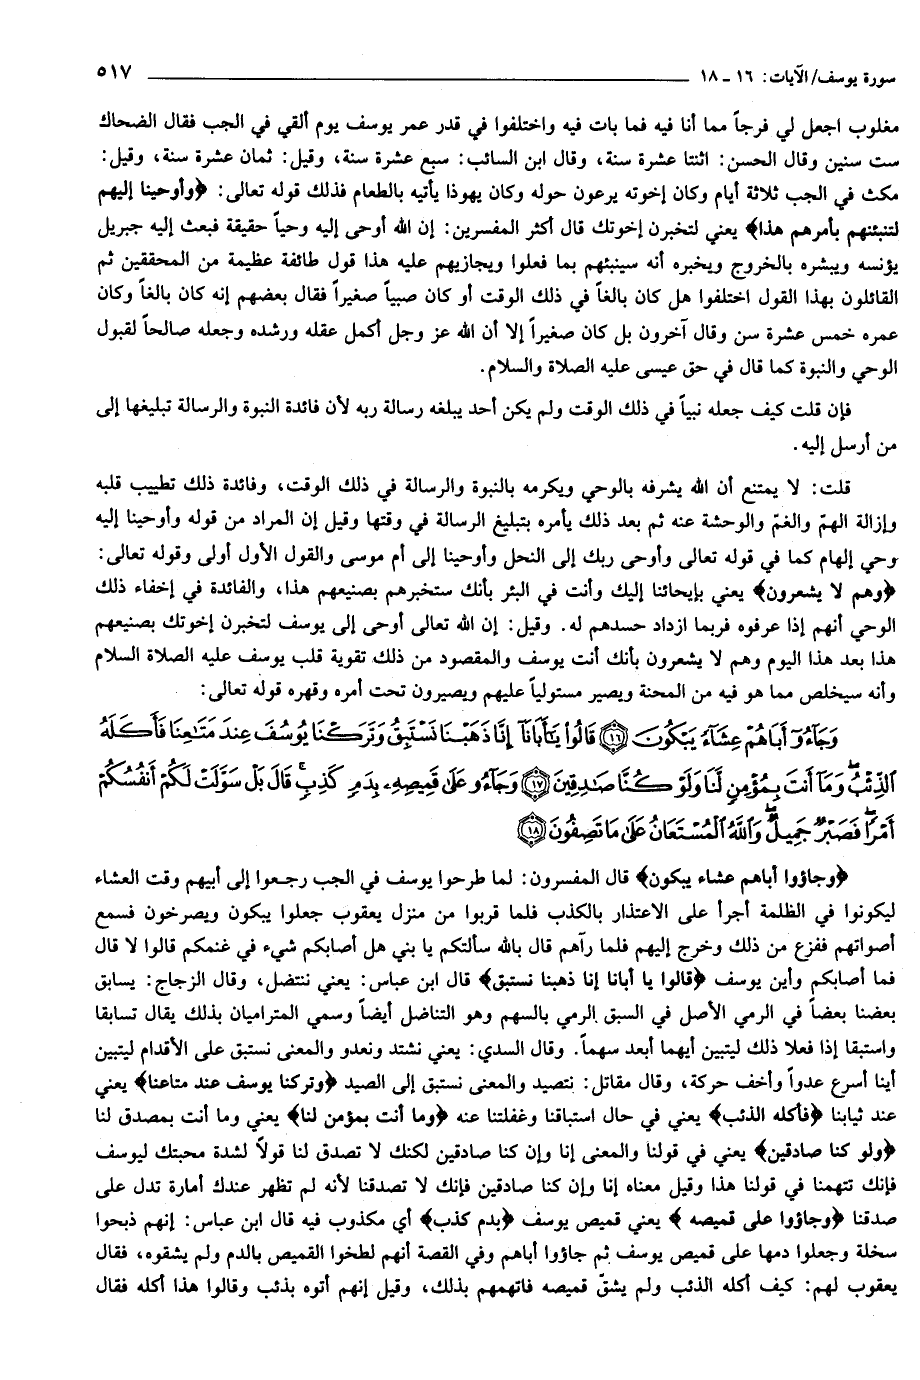 سورة يوسف/ الآيات: ١٦ ـ ١٨ ٥١٧
مغلوب اجعل لي فرجاً مما أنا فيه فما بات فيه واختلفوا في قدر عمر يوسف يوم ألقي في الجب فقال الضحاك
ست سنين وقال الحسن: اثنتا عشرة سنة، وقال ابن السائب: سبع عشرة سنة، وقيل: ثمان عشرة سنة، وقيل:
مكث في الجب ثلاثة أيام وكان إخوته يرعون حوله وكان يهوذا يأتيه بالطعام فذلك قوله تعالى: ﴿وأوحينا إليهم
لتنبئنهم بأمرهم هذا﴾ يعني لتخبرن إخوتك قال أكثر المفسرين: إن الله أوحى إليه وحياً حقيقة فبعث إليه جبريل
يؤنسه ويبشره بالخروج ويخبره أنه سينبئهم بما فعلوا ويجازيهم عليه هذا قول طائفة عظيمة من المحققين ثم
القائلون بهذا القول اختلفوا هل كان بالغاً في ذلك الوقت أو كان صبياً صغيراً فقال بعضهم إنه كان بالغاً وكان
عمره خمس عشرة سن وقال آخرون بل كان صغيراً إلا أن الله عز وجل أكمل عقله ورشده وجعله صالحاً لقبول
الوحي والنبوة كما قال في حق عيسى عليه الصلاة والسلام.
فإن قلت كيف جعله نبياً في ذلك الوقت ولم يكن أحد يبلغه رسالة ربه لأن فائدة النبوة والرسالة تبليغها إلى
من أرسل إليه.
قلت: لا يمتنع أن الله يشرفه بالوحي ويكرمه بالنبوة والرسالة في ذلك الوقت، وفائدة ذلك تطييب قلبه
وإزالة الهمّ والغمّ والوحشة عنه ثم بعد ذلك يأمره بتبليغ الرسالة في وقتها وقيل إن المراد من قوله وأوحينا إليه
وحي إلهام كما في قوله تعالى وأوحى ربك إلى النحل وأوحينا إلى أم موسى والقول الأول أولى وقوله تعالى:
﴿وهم لا يشعرون﴾ يعني بإيحائنا إليك وأنت في البئر بأنك ستخبرهم بصنيعهم هذا، والفائدة في إخفاء ذلك
الوحي أنهم إذا عرفوه فربما ازداد حسدهم له. وقيل: إن الله تعالى أوحى إلى يوسف لتخبرن إخوتك بصنيعهم
هذا بعد هذا اليوم وهم لا يشعرون بأنك أنت يوسف والمقصود من ذلك تقوية قلب يوسف عليه الصلاة السلام
وأنه سيخلص مما هو فيه من المحنة ويصير مستولياً عليهم ويصيرون تحت أمره وقهره قوله تعالى:
وَجَآءُوٓ أَبَاهُمْ عِشَآءً يَبْكُونَ ﴿١٦﴾ قَالُوا۟ يَٰٓأَبَانَآ إِنَّا ذَهَبْنَا نَسْتَبِقُ وَتَرَكْنَا يُوسُفَ عِندَ مَتَٰعِنَا فَأَكَلَهُ
ٱلذِّئْبُ ۖ وَمَآ أَنتَ بِمُؤْمِنٍ لَّنَا وَلَوْ كُنَّا صَٰدِقِينَ ﴿١٧﴾ وَجَآءُو عَلَىٰ قَمِيصِهِۦ بِدَمٍ كَذِبٍ ۚ قَالَ بَلْ سَوَّلَتْ لَكُمْ أَنفُسُكُمْ
أَمْرًا ۖ فَصَبْرٌ جَمِيلٌ ۖ وَٱللَّهُ ٱلْمُسْتَعَانُ عَلَىٰ مَا تَصِفُونَ ﴿١٨﴾
﴿وجاؤوا أباهم عشاء يبكون﴾ قال المفسرون: لما طرحوا يوسف في الجب رجعوا إلى أبيهم وقت العشاء
ليكونوا في الظلمة أجرأ على الاعتذار بالكذب فلما قربوا من منزل يعقوب جعلوا يبكون ويصرخون فسمع
أصواتهم ففزع من ذلك وخرج إليهم فلما رآهم قال بالله سألتكم يا بني هل أصابكم شيء في غنمكم قالوا لا قال
فما أصابكم وأين يوسف ﴿قالوا يا أبانا إنا ذهبنا نستبق﴾ قال ابن عباس: يعني ننتضل، وقال الزجاج: يسابق
بعضنا بعضاً في الرمي الأصل في السبق الرمي بالسهم وهو التناضل أيضاً وسمي المتراميان بذلك يقال تسابقا
واستبقا إذا فعلا ذلك ليتبين أيهما أبعد سهماً. وقال السدي: يعني نشتد ونعدو والمعنى نستبق على الأقدام ليتبين
أينا أسرع عدواً وأخف حركة، وقال مقاتل: نتصيد والمعنى نستبق إلى الصيد ﴿وتركنا يوسف عند متاعنا﴾ يعني
عند ثيابنا ﴿فأكله الذئب﴾ يعني في حال استباقنا وغفلتنا عنه ﴿وما أنت بمؤمن لنا﴾ يعني وما أنت بمصدق لنا
﴿ولو كنا صادقين﴾ يعني في قولنا والمعنى إنا وإن كنا صادقين لكنك لا تصدق لنا قولاً لشدة محبتك ليوسف
فإنك تتهمنا في قولنا هذا وقيل معناه إنا وإن كنا صادقين فإنك لا تصدقنا لأنه لم تظهر عندك أمارة تدل على
صدقنا ﴿وجاؤوا على قميصه ﴾ يعني قميص يوسف ﴿بدم كذب﴾ أي مكذوب فيه قال ابن عباس: إنهم ذبحوا
سخلة وجعلوا دمها على قميص يوسف ثم جاؤوا أباهم وفي القصة أنهم لطخوا القميص بالدم ولم يشقوه، فقال
يعقوب لهم: كيف أكله الذئب ولم يشقّ قميصه فاتهمهم بذلك، وقيل إنهم أتوه بذئب وقالوا هذا أكله فقال